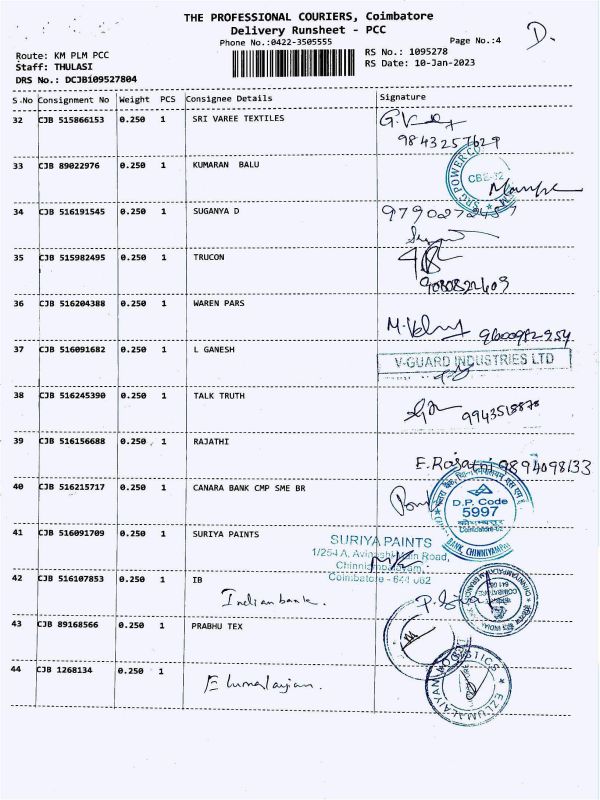 THE PROFESSIONAL COURIERS, Coimbatore
Delivery Runsheet - PCC
Phone No.:0422-3505555
Page No.:4
D.
Route: KM PLM PCC
RS No.: 1095278
Staff: THULASI
RS Date: 10-Jan-2023
DRS No.: DCJB109527804
S.No Consignment No Weight PCS Consignee Details Signature
32 CJB 515866153 0.250 1 SRI VAREE TEXTILES
9843257629
33 CJB 89022976 0.250 1 KUMARAN BALU
SRG POWERCO
CBE-12
34 CJB 516191545 0.250 1 SUGANYA D
35 CJB 515982495 0.250 1 TRUCON
9080822603
36 CJB 516204388 0.250 1 WAREN PARS
9600982954
37 CJB 516091682 0.250 1 L GANESH
V-GUARD INDUSTRIES LTD
38 CJB 516245390 0.250 1 TALK TRUTH
9943518878
39 CJB 516156688 0.250 1 RAJATHI
E. Rajathi 9894098133
40 CJB 516215717 0.250 1 CANARA BANK CMP SME BR
D.P. Code
5997
Coimbatore-62
BANK, CHINNIYAMPA
41 CJB 516091709 0.250 1 SURIYA PAINTS
SURIYA PAINTS
1/254 A, Avinashi Main Road,
Chinniampalayam,
Coimbatore - 641 062
42 CJB 516107853 0.250 1 IB
Indian bank.
43 CJB 89168566 0.250 1 PRABHU TEX
44 CJB 1268134 0.250 1
Elumalaiyan.
EZLUMALAIYAN LOGISTICS